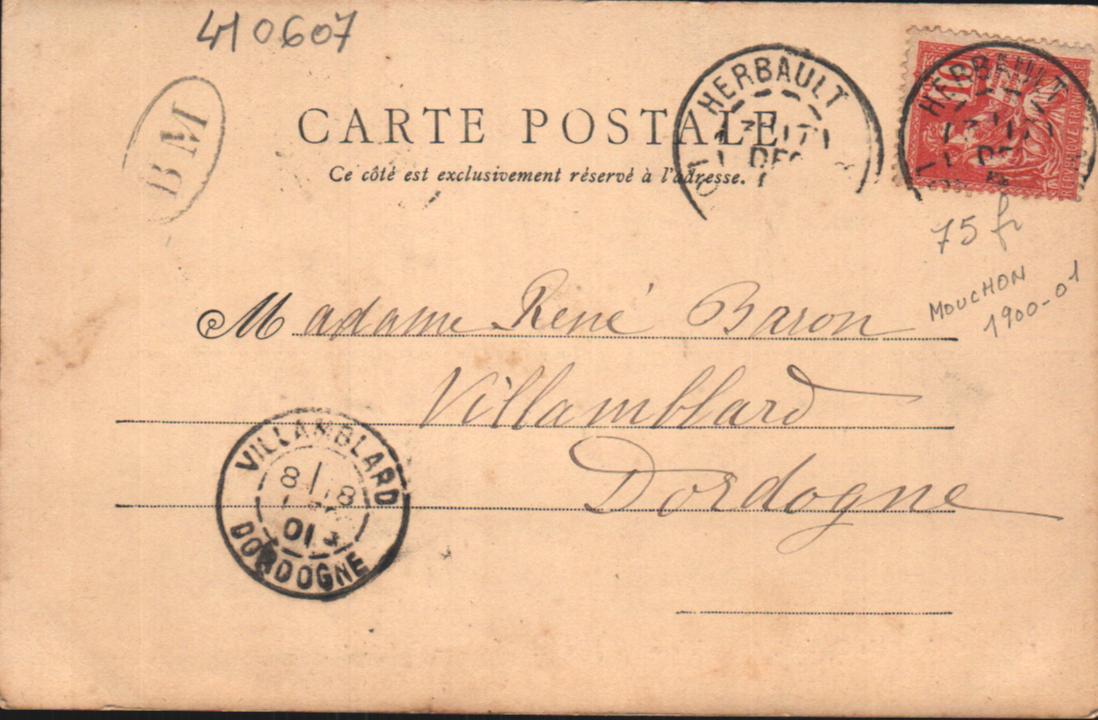 410607
BM
CARTE POSTALE
Ce côté est exclusivement réservé à l'adresse.
HERBAULT
DEC
HERBAULT
10
75 fr
MOUCHON
1900-01
Madame René Baron
Villamblard
Dordogne
VILLAMBLARD
8 18
01
DORDOGNE